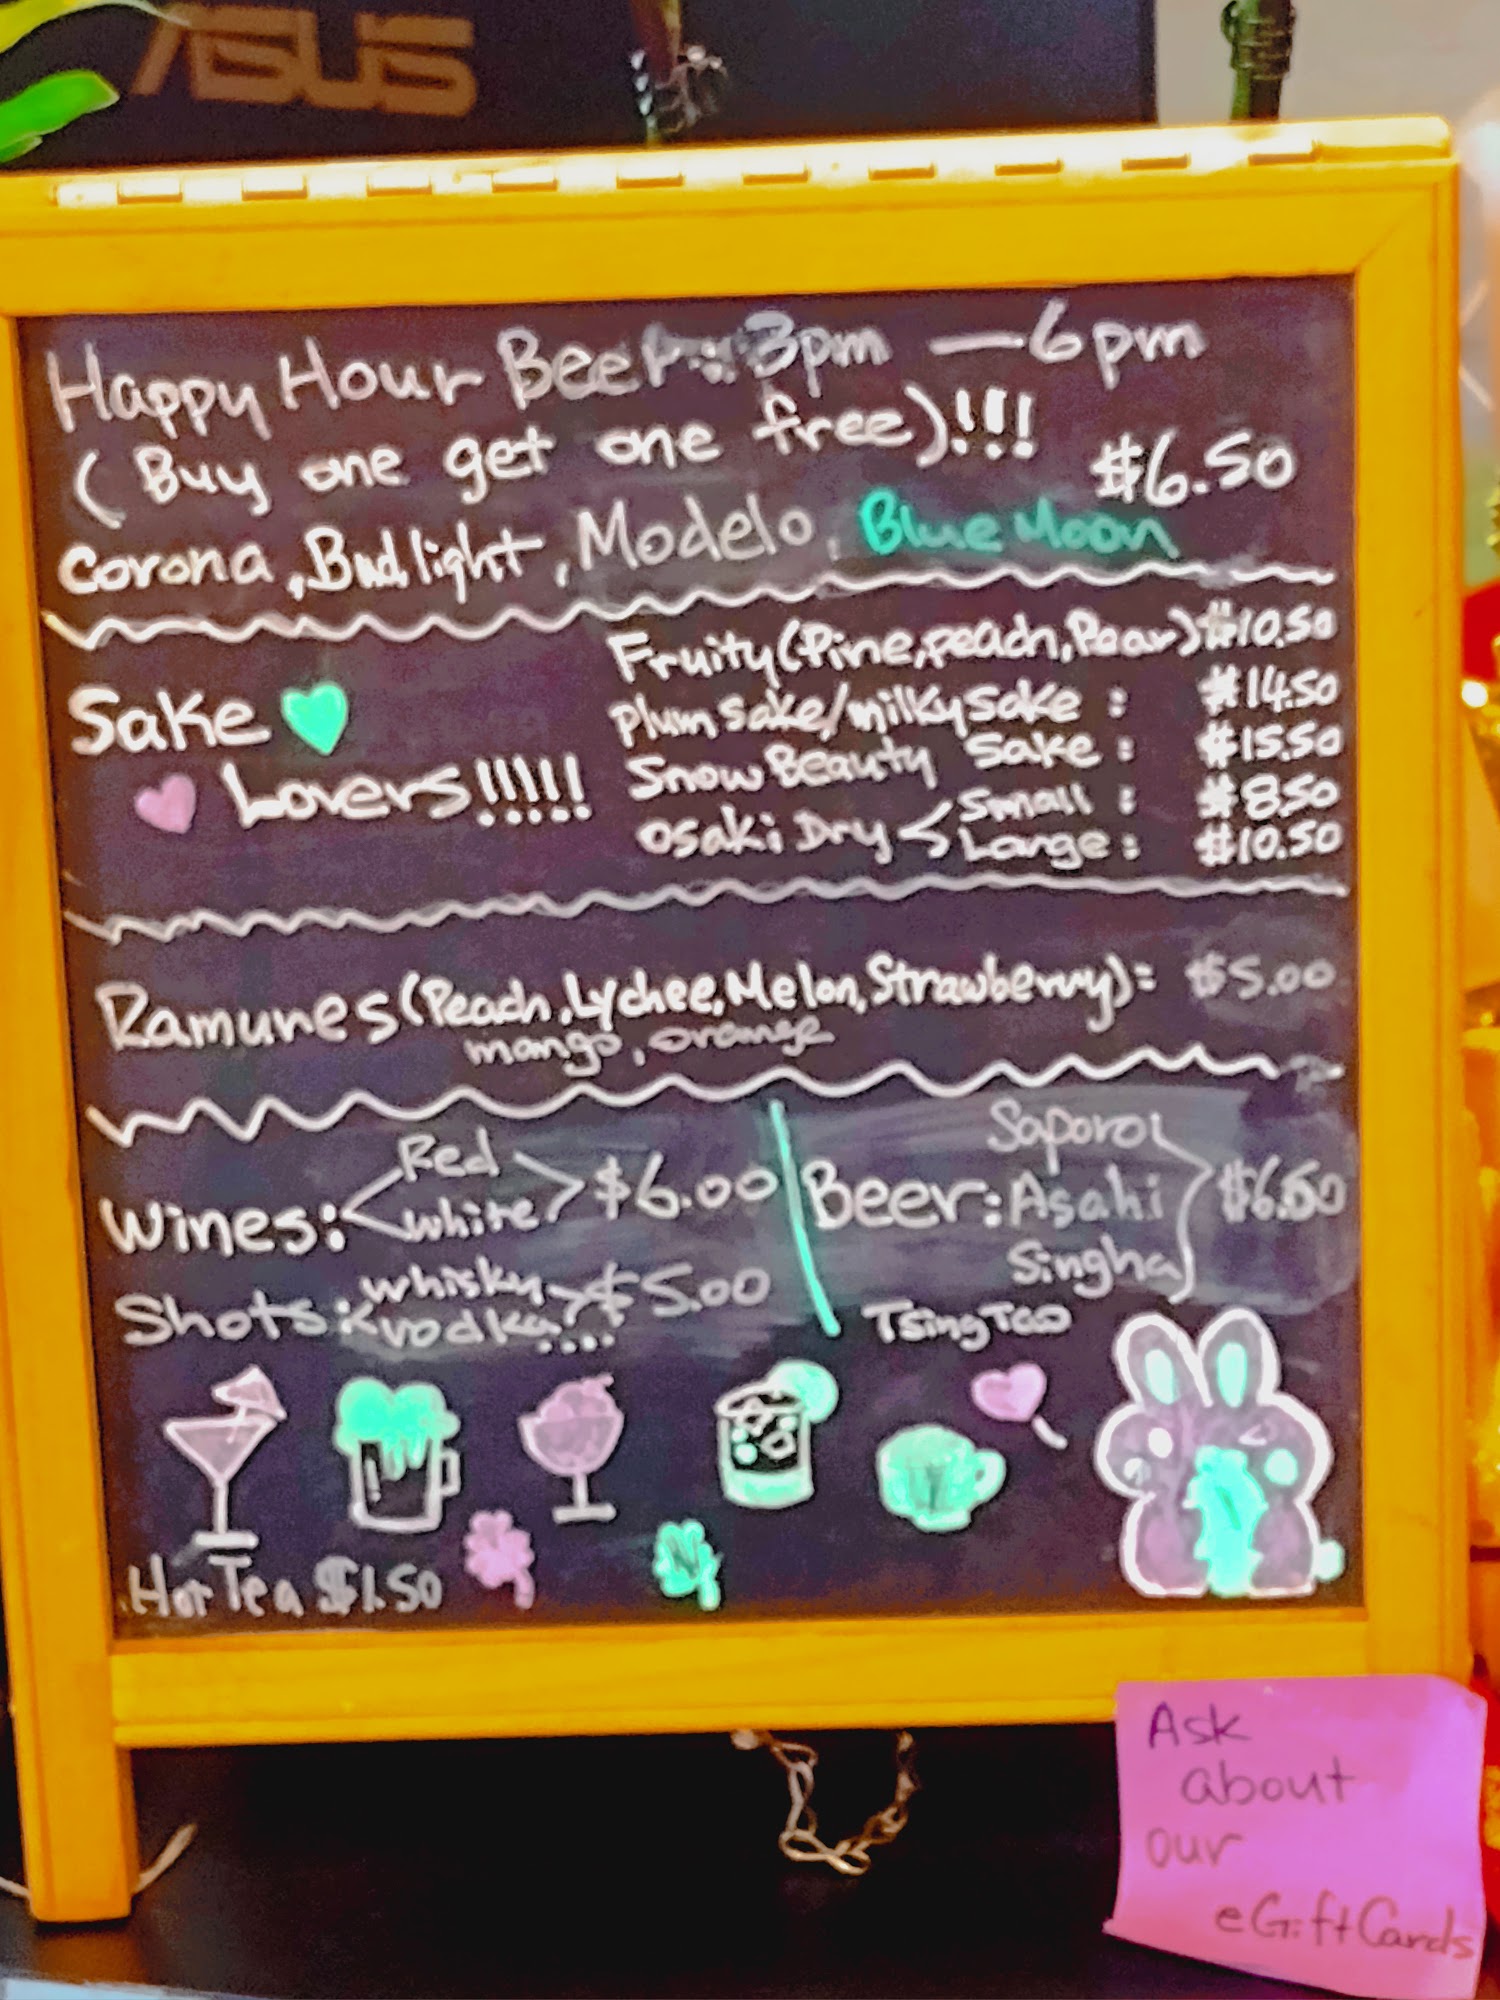 ASUS
Happy Hour Beer: 3pm — 6pm
(Buy one get one free)!!! $6.50
Corona, Budlight, Modelo, Blue Moon
Fruity (Pine, peach, Pear) $10.50
Sake Plum sake/milky sake : $14.50
Lovers!!!!! Snow Beauty Sake : $15.50
Osaki Dry < Small : $8.50
Large : $10.50
Ramunes (Peach, Lychee, Melon, Strawberry): $5.00
mango, orange
Wines: Red White $6.00
Shots: whisky vodka.... $5.00
Beer: Saporo, Asahi Singha $6.50
TsingTao
Hot Tea $1.50
Ask
about
our
eGiftCards